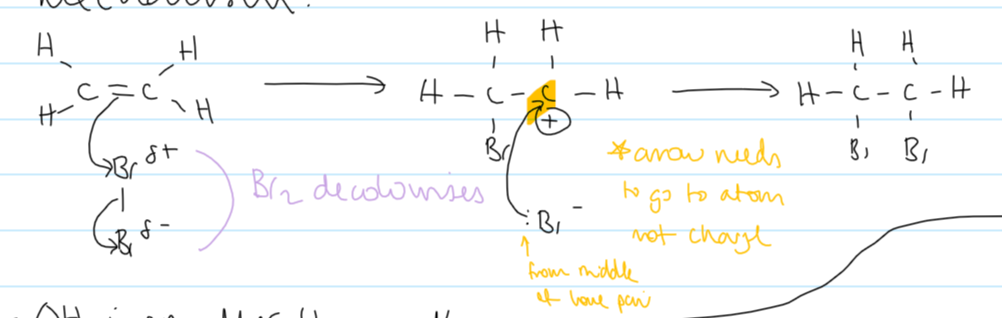 Mechanism:
H H H H H H
C = C H - C - C - H H - C - C - H
H H Br + Br Br
Br δ+
Br δ-
Br2 decolourises
:Br -
*arrow needs
to go to atom
not charge
from middle
of lone pair